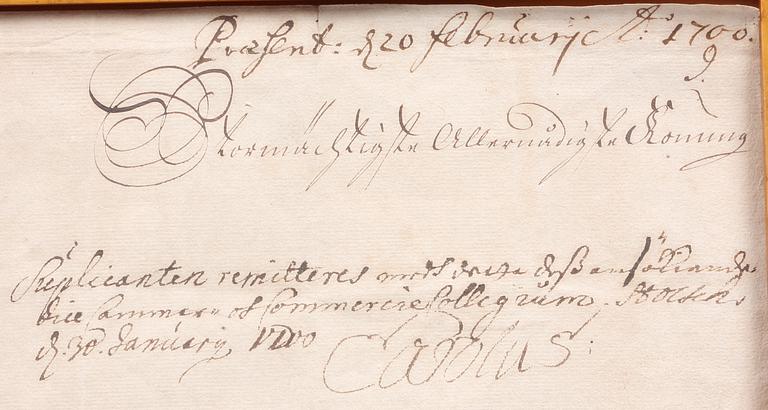 Præsent: d 20 Februarij A:o 1700.
9
Stormächtigste Allernådigste Konung
Supliicanten remitteres med detta dess ansökiande
till Cammer- och Commercie Collegium. Stockh.
d. 30. January 1700
Carolus